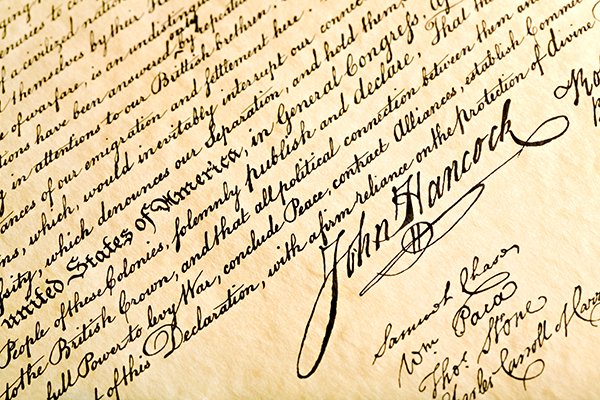 of a civilized nation.
themselves by their
of warfare, is an undistingui
tions have been answered only by repeated
in attentions to our British brethren.
ances of our emigration and settlement here.
ns, which, would inevitably interrupt our connec
ssity, which denounces our Separation, and hold them,
united States of America, in General Congress,
People of these Colonies, solemnly publish and declare, That
to the British Crown, and that all political connection between them an
full Power to levy War, conclude Peace, contract Alliances, establish Comme
of this Declaration, with a firm reliance on the protection of divine
John Hancock
Samuel Chase
Wm Paca
Thos. Stone
Charles Carroll of Carr